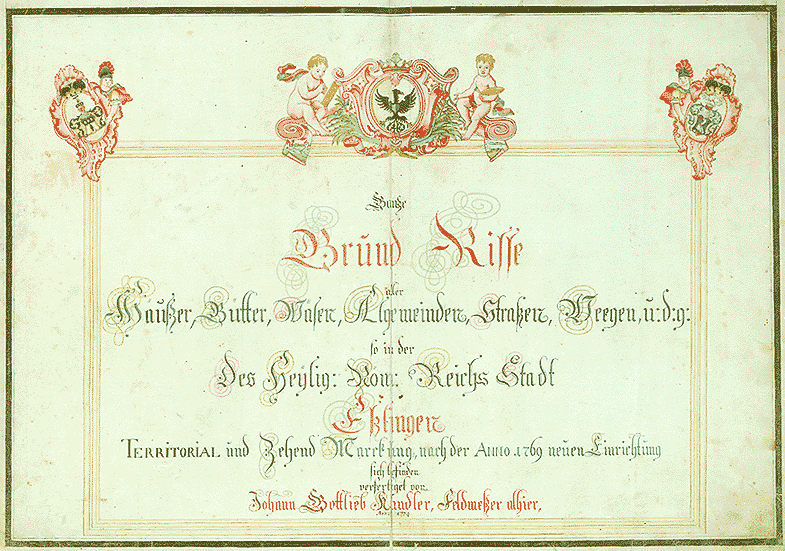 Gantze
Grund-Risse
aller
Häußer, Gütter, Wasen, Algemeinden, Straßen, Weegen, u: d: g:
so in der
Des Heylig: Röm: Reichs Stadt
Eßlingen
TERRITORIAL und Zehend Marckung, nach der ANNO. 1769 neuen Einrichtung
sich befinden
verfertiget von
Johann Gottlieb Kandler, Feldmeßer alhier,
1774